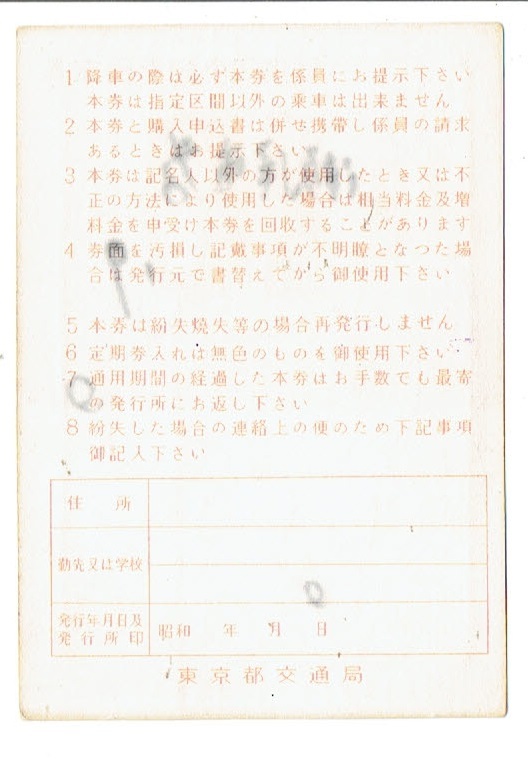 1 降車の際は必ず本券を係員にお提示下さい
本券は指定区間以外の乗車は出来ません
2 本券と購入申込書は併せ携帯し係員の請求
あるときはお提示下さい
3 本券は記名人以外の方が使用したとき又は不
正の方法により使用した場合は相当料金及増
料金を申受け本券を回収することがあります
4 券面を汚損し記載事項が不明瞭となつた場
合は発行元で書替えてから御使用下さい
5 本券は紛失焼失等の場合再発行しません
6 定期券入れは無色のものを御使用下さい
7 通用期間の経過した本券はお手数でも最寄
の発行所にお返し下さい
8 紛失した場合の連絡上の便のため下記事項
御記入下さい
住所
勤先又は学校
発行年月日及
発行所印
昭和 年 月 日
東京都交通局